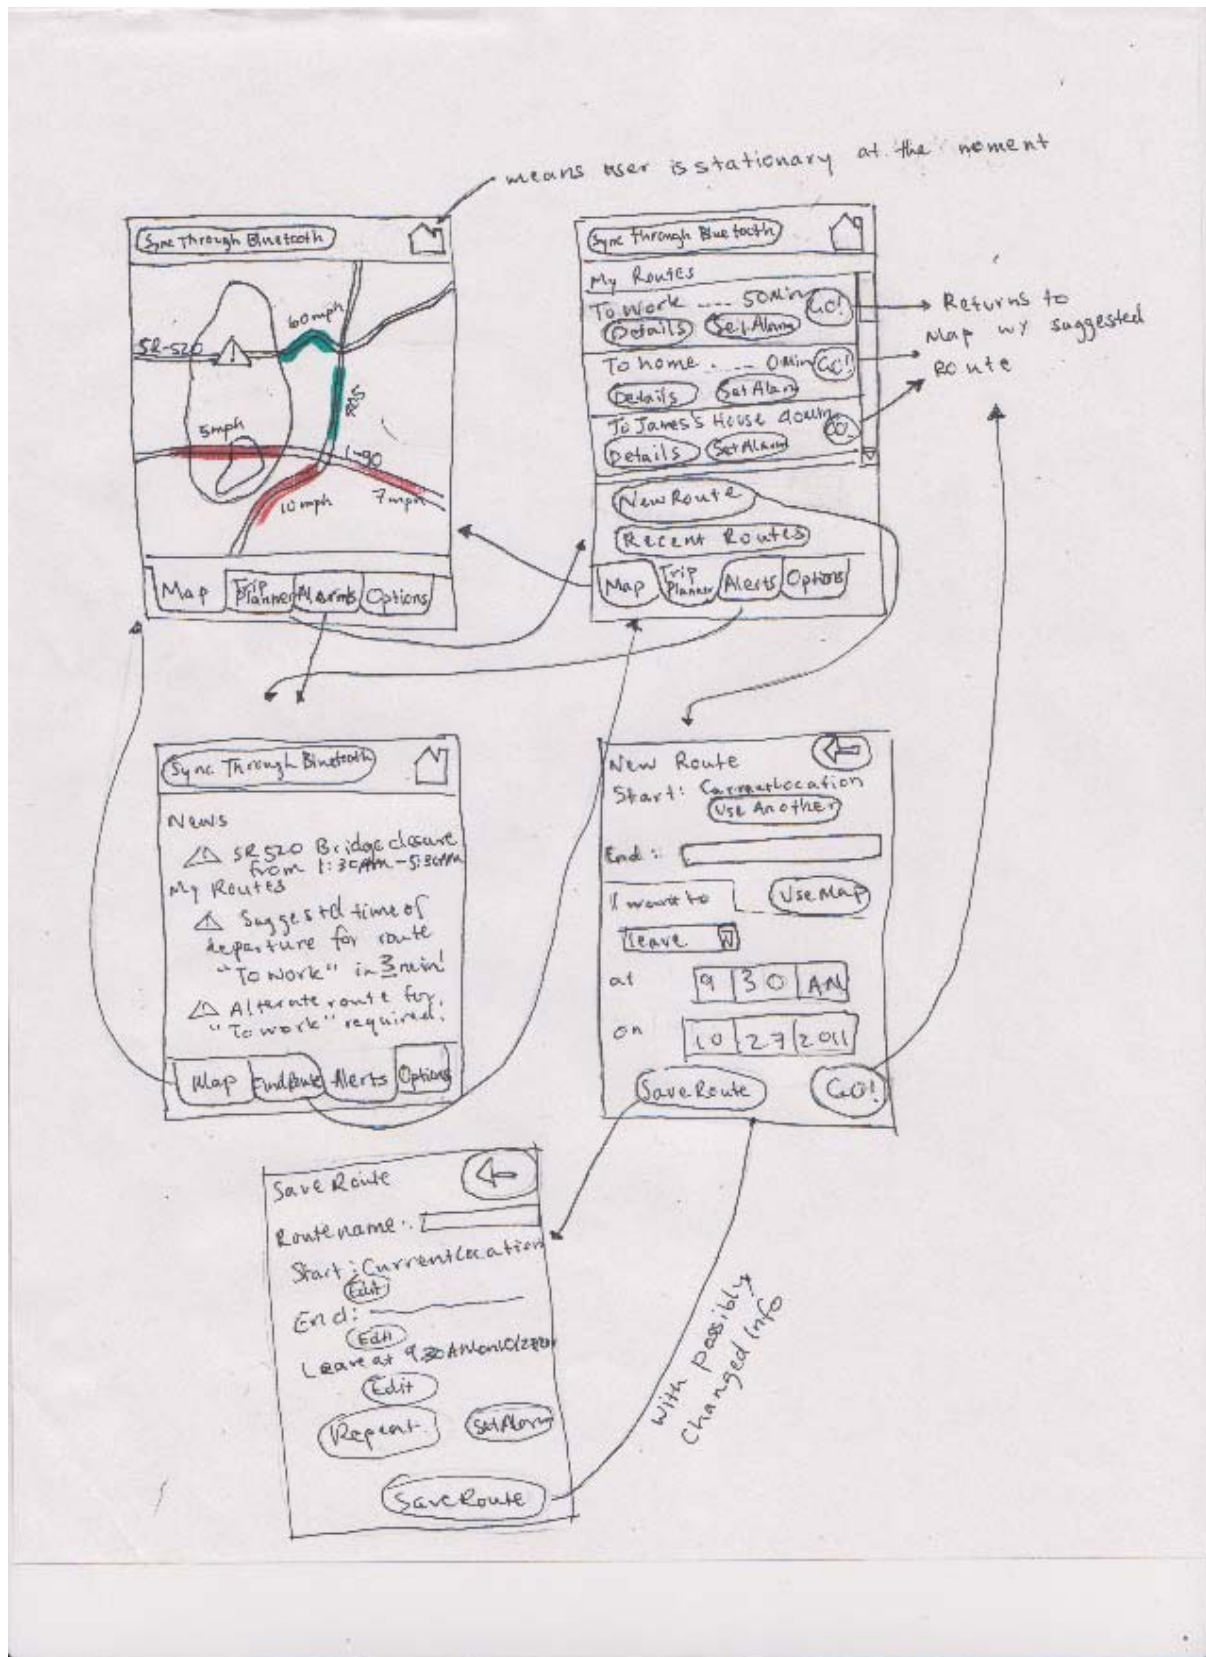 means user is stationary at the moment
Sync Through Bluetooth
60mph
SR-520
5mph
I-90
10 mph
7mph
Map
Trip Planner
Options
Sync Through Bluetooth
My Routes
To Work .... 50Min
GO!
Details
Set Alarm
To home . ... 0Min
GO!
Details
Set Alarm
To James's House 40min
GO.
Details
Set Alarm
New Route
Recent Routes
Map
Trip Planner
Alerts
Options
Returns to
Map w/ suggested
Route
Sync Through Bluetooth
News
SR 520 Bridge closure
from
My Routes
Suggestd time of
departure for route
"To Work" in 3 min!
Alternate route for
"To work" required.
Map
Find Route
Alerts
Options
New Route
Start: Current Location
Use Another
End :
I want to
Use Map
leave
at
9 30 AM
on
10 27 2011
Save Route
GO!
Save Route
Route name :
Start : Current Location
Edit
End:
Edit
Leave at 9.30 AM on
Edit
Repeat
Set Alarm
Save Route
with possibly
Changed Info